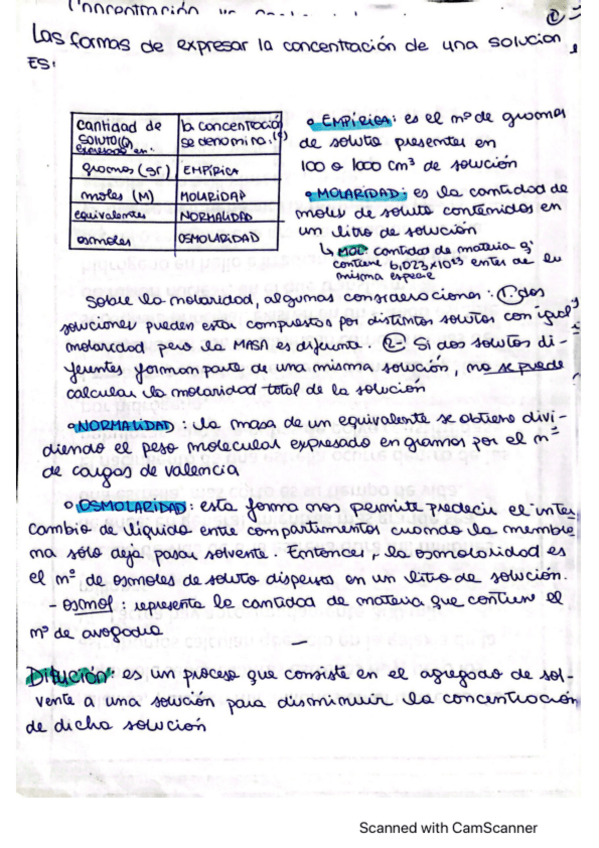 Las formas de expresar la concentración de una solucion
ES:
cantidad de SOLUTO(s) expresado en: | la concentració se denomina:(s)
gramos (gr) | EMPÍRICA
moles (M) | MOLARIDAD
equivalentes | NORMALIDAD
osmoles | OSMOLARIDAD
• EMPÍRICA: es el nº de gramos
de soluto presentes en
100 o 1000 cm³ de solución
• MOLARIDAD: es la cantidad de
moles de soluto contenidos en
un litro de solución
↳ MOL: cantidad de materia q'
contiene 6,023x10²³ entes de la
misma especie
Sobre la molaridad, algunas consideraciones: 1. dos
soluciones pueden estar compuestas por distintos solutos con igual
molaridad pero la MASA es difunta. 2- Si dos solutos di-
ferentes forman parte de una misma solución, no se puede
calcular la molaridad total de la solución
• NORMALIDAD: la masa de un equivalente se obtiene divi-
diendo el peso molecular expresado en gramos por el nº
de cargas de valencia
• OSMOLARIDAD: esta forma nos permite predecir el inter
cambio de líquido entre compartimentos cuando la membra
ma sólo deja pasar solvente. Entonces, la osmolaridad es
el nº de osmoles de soluto dispersos en un litro de solución.
- osmol: representa la cantidad de materia que contiene el
nº de avogadro
Dilución: es un proceso que consiste en el agregado de sol-
vente a una solución para disminuir la concentración
de dicha solución
Scanned with CamScanner